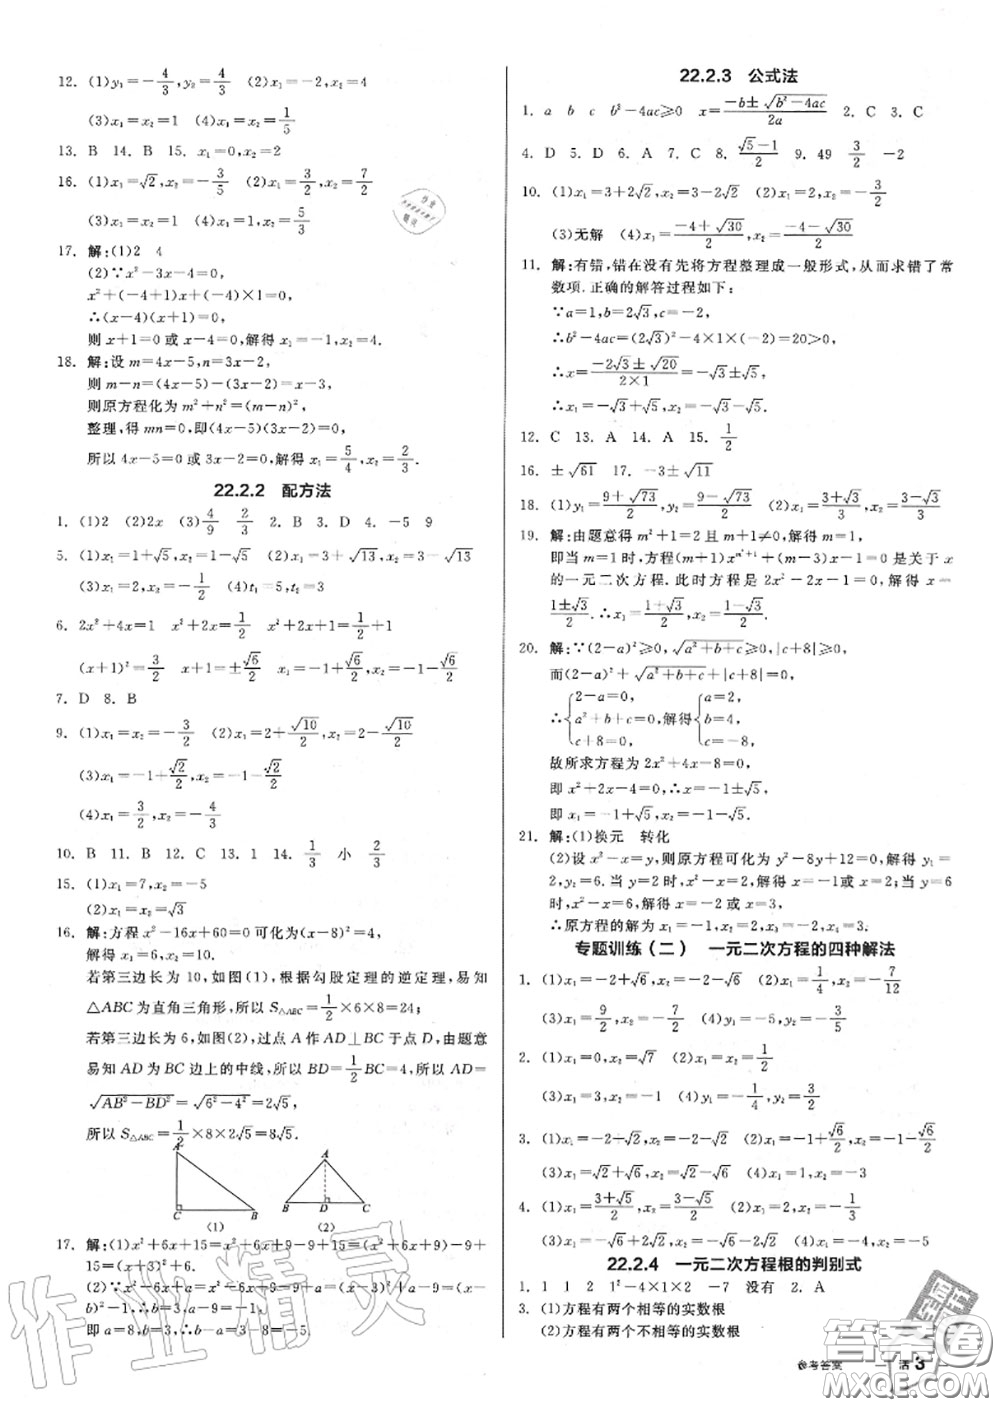 12. (1)y₁=-4/3,y₂=4/3 (2)x₁=-1,x₂=0
(3)x₁=x₂=1 (4)x₁=x₂=1/5
13. B 14. B 15. x₁=0,x₂=2
16. (1)x₁=√2,x₂=-3/5 (2)x₁=3/2,x₂=7/2
(3)x₁=x₂=3 (4)x₁=1,x₂=5/3
17. 解:(1)2 4
(2)∵x²-3x-4=0,
x²+(-4+1)x+(-4)×1=0,
∴(x-4)(x+1)=0,
则x+1=0或x-4=0,解得x₁=-1,x₂=4.
18. 解:设m=4x-5,n=3x-2,
则m-n=(4x-5)-(3x-2)=x-3,
则原方程化为m²+n²=(m-n)²,
整理,得mn=0,即(4x-5)(3x-2)=0,
所以4x-5=0或3x-2=0,解得x₁=5/4,x₂=2/3.
22.2.2 配方法
1. (1)2 (2)2x (3)4/9 2/3 2. B 3. D 4. -5 9
5. (1)x₁=1+√5,x₂=1-√5 (2)x₁=3+√13,x₂=3-√13
(3)x₁=2,x₂=-1/2 (4)t₁=t₂=1
6. 2x²+4x=1 x²+2x=1/2 x²+2x+1=1/2+1
(x+1)²=3/2 x+1=±√6/2 x₁=-1+√6/2,x₂=-1-√6/2
7. D 8. B
9. (1)x₁=x₂=-3/2 (2)x₁=2+√10/2,x₂=2-√10/2
(3)x₁=-1+√2/2,x₂=-1-√2/2
(4)x₁=3/2,x₂=-4/3
10. B 11. B 12. C 13. 1 14. 1/3 小 2/3
15. (1)x₁=7,x₂=-5
(2)x₁=x₂=√3
16. 解:方程x²-16x+60=0可化为(x-8)²=4,
解得x₁=10,x₂=6.
若第三边长为10,如图(1),根据勾股定理的逆定理,易知
△ABC为直角三角形,所以S△ABC=1/2×6×8=24;
若第三边长为6,如图(2),过点A作AD⊥BC于点D,由题意
易知AD为BC边上的中线,所以BD=1/2BC=4,所以AD=
√AB²-BD²=√6²-4²=2√5,
所以S△ABC=1/2×8×2√5=8√5.
A
C
B
(1)
A
B
D
C
(2)
17. 解:(1)x²+6x+15=x²+6x+9-9+15=(x²+6x+9)+6
=(x+3)²+6.
b)²=0,
即a=8,b=3,∴a-b=8-3=5.
22.2.3 公式法
1. a b c b²-4ac≥0 x=(-b±√b²-4ac)/2a 2. C 3. C
4. D 5. D 6. A 7. C 8. (√5-1)/2 9. 49 3/2 -2
10. (1)x₁=3+2√2,x₂=3-2√2 (2)x₁=2,x₂=-3/2
(3)无解 (4)x₁=(-4+√30)/2,x₂=(-4-√30)/2
11. 解:有错,错在没有先将方程整理成一般形式,从而求错了常
数项.正确的解答过程如下:
∵a=1,b=2√3,c=-2,
∴b²-4ac=(2√3)²-4×1×(-2)=20>0,
∴x=(-2√3±√20)/(2×1)=-√3±√5,
∴x₁=-√3+√5,x₂=-√3-√5.
12. C 13. A 14. A 15. 1/2
16. ±√61 17. -3±√11
18. (1)y₁=(9+√73)/2,y₂=(9-√73)/2 (2)x₁=(3+√3)/3,x₂=(3-√3)/3
19. 解:由题意得m²+1=2且m+1≠0,解得m=1,
即当m=1时,方程(m+1)x^(m²+1)+(m-3)x-1=0是关于x
的一元二次方程.此时方程是2x²-2x-1=0,解得x=
(1±√3)/2.∴x₁=(1+√3)/2,x₂=(1-√3)/2.
20. 解:∵(2-a)²≥0,√a²+b+c≥0,|c+8|≥0,
而(2-a)²+√a²+b+c+|c+8|=0,
∴{2-a=0, a²+b+c=0, c+8=0, 解得{a=2, b=4, c=-8,
故所求方程为2x²+4x-8=0,
即x²+2x-4=0,∴x=-1±√5,
即x₁=-1+√5,x₂=-1-√5.
21. 解:(1)换元 转化
(2)设x²-x=y,则原方程可化为y²-8y+12=0,解得y₁=
2,y₂=6.当y=2时,x²-x=2,解得x=-1或x=2;当y=6
时,x²-x=6,解得x=-2或x=3,
∴原方程的解为x₁=-1,x₂=2,x₃=-2,x₄=3.
专题训练(二) 一元二次方程的四种解法
1. (1)x₁=-2+√5,x₂=-2-√5 (2)x₁=1/4,x₂=-7/12
(3)x₁=9/2,x₂=7/4 (4)y₁=-5,y₂=-5/3
2. (1)x₁=0,x₂=√7 (2)x₁=x₂=1/2
(3)x₁=3,x₂=-1 (4)y₁=-1/4,y₂=3/2
3. (1)x₁=-2+√5,x₂=-2-√5 (2)x₁=-1+√6/2,x₂=-1-√6/2
(3)x₁=√2+√6,x₂=√2-√6 (4)x₁=-1,x₂=-3
4. (1)x₁=(3+√5)/2,x₂=(3-√5)/2 (2)x₁=0,x₂=-1/3
(3)x₁=-√2+√6,x₂=-√2-√6 (4)x₁=3,x₂=1
22.2.4 一元二次方程根的判别式
1. 1 1 2 1²-4×1×2 -7 没有 2. A
3. (1)方程有两个相等的实数根
(2)方程有两个不相等的实数根
参考答案
活3
作业精灵
答案圈
MXQE.COM